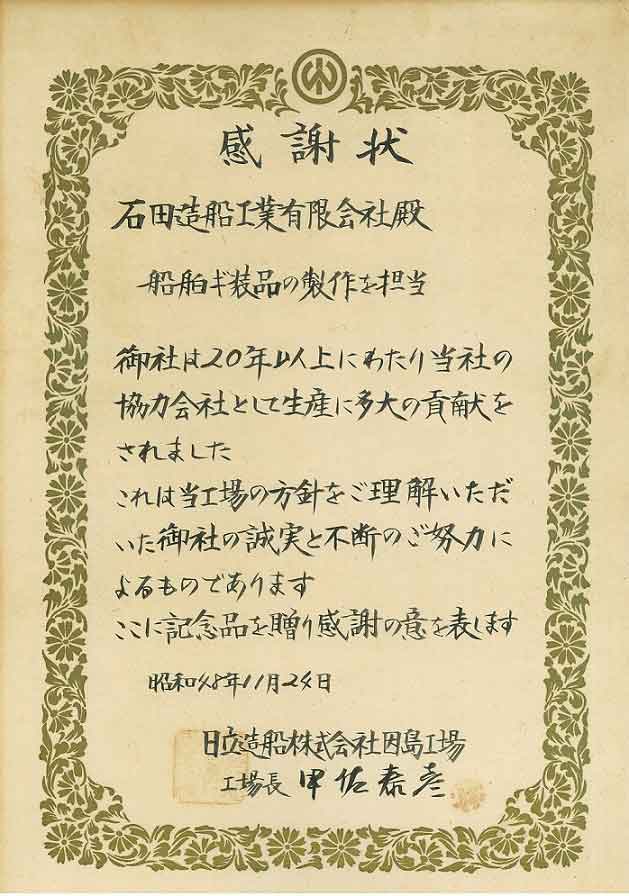 感謝状
石田造船工業有限会社殿
船舶ギ装品の製作を担当
御社は20年以上にわたり当社の
協力会社として生産に多大の貢献を
されました
これは当工場の方針をご理解いただ
いた御社の誠実と不断のご努力に
よるものであります
ここに記念品を贈り感謝の意を表します
昭和48年11月24日
日立造船株式会社因島工場
工場長 甲佐泰彦